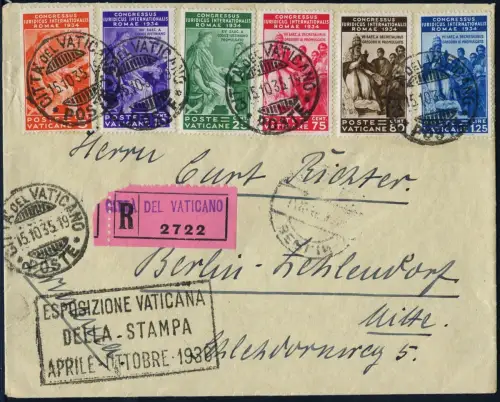 CONGRESSUS
IURIDICUS INTERNATIONALIS
ROMAE 1934
POSTE
VATICANE
CONGRESSUS
IURIDICUS INTERNATIONALIS
ROMAE 1934
POSTE
VATICANE
CONGRESSUS
IURIDICUS INTERNATIONALIS
ROMAE 1934
POSTE
VATICANE 25
CONGRESSUS
IURIDICUS INTERNATIONALIS
ROMAE 1934
POSTE CENT
VATICANE 75
CONGRESSUS
IURIDICUS INTERNATIONALIS
ROMAE 1934
POSTE CENT
VATICANE 80
CONGRESSUS
IURIDICUS INTERNATIONALIS
ROMAE 1934
POSTE LIRE
VATICANE 1,25
CITTÀ DEL VATICANO
15.10.35
POSTE
CITTÀ DEL VATICANO
15.10.35.19
POSTE
Herrn Curt Richter
R CITTÀ DEL VATICANO
2722
CITTÀ DEL VATICANO
15.10.35.19
POSTE
Berlin-Zehlendorf
Mitte.
5.
ESPOSIZIONE VATICANA
DELLA-STAMPA
APRILE-OTTOBRE-1936